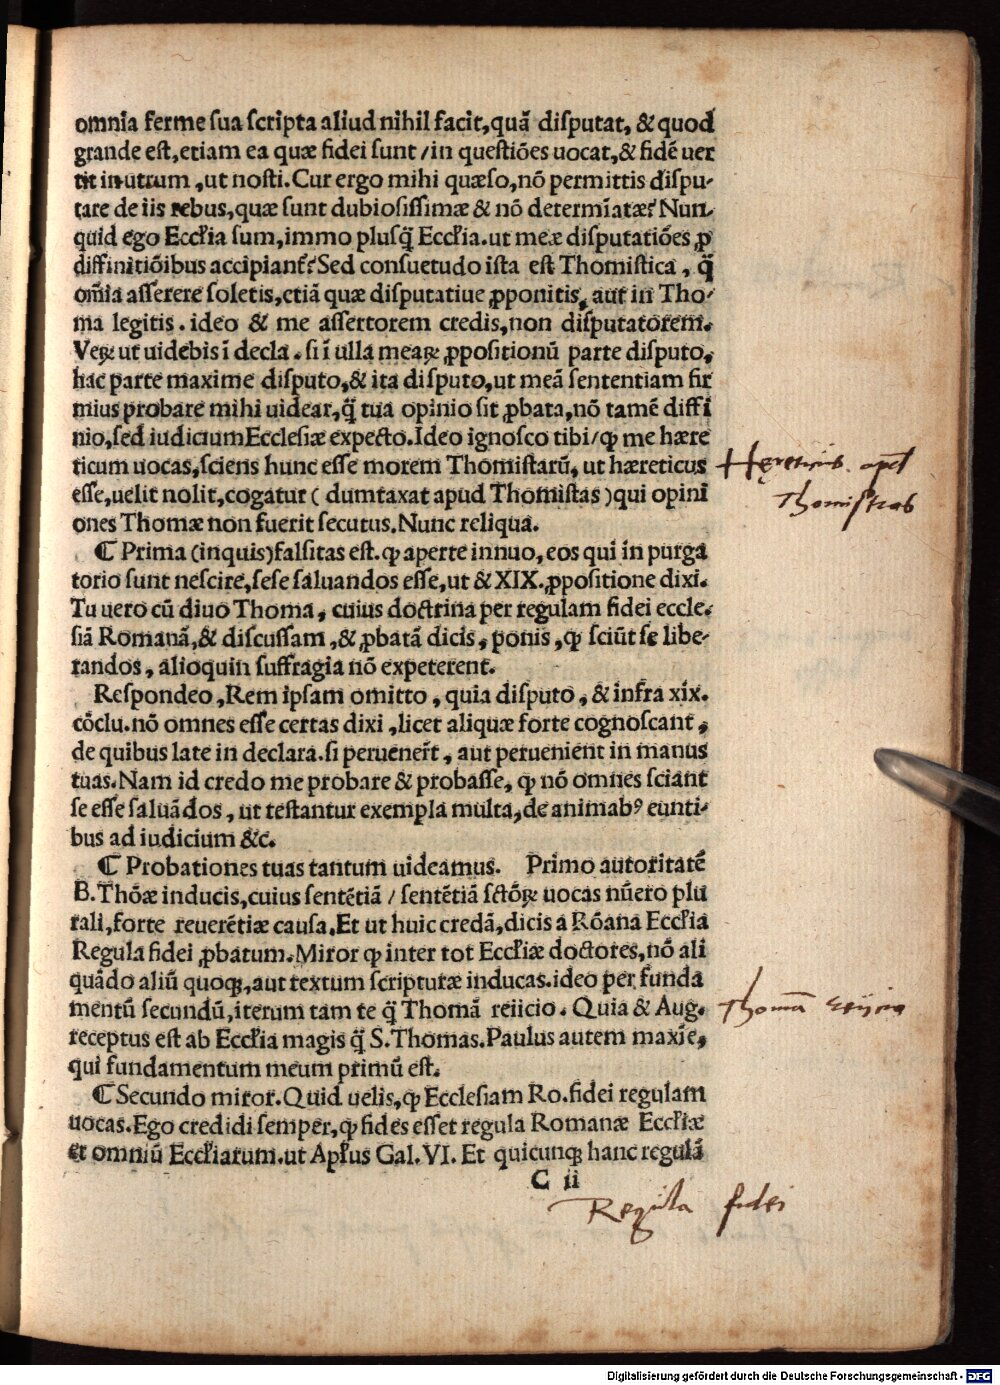 omnia ferme sua scripta aliud nihil facit, quã disputat, & quod
grande est, etiam ea quæ fidei sunt / in questiões uocat, & fidẽ uer
tit in utrum, ut nosti. Cur ergo mihi quæso, nõ permittis dispu-
tare de iis rebus, quæ sunt dubiosissimæ & nõ determĩatæ? Nun
quid ego Eccl'ia sum, immo plusq̃ Eccl'ia. ut meæ disputatiões ꝓ
diffinitiõibus accipiant̃? Sed consuetudo ista est Thomistica, q̃
om̃ia asserere soletis, etiã quæ disputatiue ꝓponitis, aut in Tho-
ma legitis. ideo & me assertorem credis, non disputatorem.
Veꝝ ut uidebis ĩ decla. si ĩ ulla meaꝝ ꝓpositionũ parte disputo,
hac parte maxime disputo, & ita disputo, ut meã sententiam fir
mius probare mihi uidear, q̃ tua opinio sit ꝓbata, nõ tamẽ diffi
nio, sed iudicium Ecclesiæ expecto. Ideo ignosco tibi / ꝙ me hære
ticum uocas, sciens hunc esse morem Thomistarũ, ut hæreticus
esse, uelit nolit, cogatur ( dumtaxat apud Thomistas ) qui opini
ones Thomæ non fuerit secutus. Nunc reliqua.
Hęreticus. apd
Thomistas
¶ Prima (inquis) falsitas est. ꝙ aperte innuo, eos qui in purga
torio sunt nescire, sese saluandos esse, ut & XIX. ꝓpositione dixi.
Tu uero cũ diuo Thoma, cuius doctrina per regulam fidei eccle-
siã Romanã, & discussam, & ꝓbatã dicis, ponis, ꝙ sciũt se libe-
randos, alioquin suffragia nõ expeterent.
Respondeo, Rem ipsam omitto, quia disputo, & infra xix.
cõclu. nõ omnes esse certas dixi, licet aliquæ forte cognoscant,
de quibus late in declara. si peruener̃t, aut peruenient in manus
tuas. Nam id credo me probare & probasse, ꝙ nõ omnes sciant
se esse saluãdos, ut testantur exempla multa, de animabꝰ eunti-
bus ad iudicium &c.
¶ Probationes tuas tantum uideamus. Primo autoritatẽ
B. Thõæ inducis, cuius sentẽtiã / sentẽtiã sctõꝝ uocas nũero plu
rali, forte reuerẽtiæ causa. Et ut huic credã, dicis a Rõana Eccl'ia
Regula fidei ꝓbatum. Miror ꝙ inter tot Eccl'iæ doctores, nõ ali
quãdo aliũ quoqꝫ, aut textum scripturæ inducas. ideo per funda
mentũ secundũ, iterum tam te q̃ Thomã reiicio. Quia & Aug.
receptus est ab Eccl'ia magis q̃ S. Thomas. Paulus autem maxĩe,
qui fundamentum meum primũ est.
Thomã reijcio
¶ Secundo miror. Quid uelis, ꝙ Ecclesiam Ro. fidei regulam
uocas. Ego credidi semper, ꝙ fides esset regula Romanæ Eccl'iæ
et omniũ Eccl'iarum. ut Apl'us Gal. VI. Et quicunqꝫ hanc regulã
C ii
Regula fidei
Digitalisierung gefördert durch die Deutsche Forschungsgemeinschaft - DFG